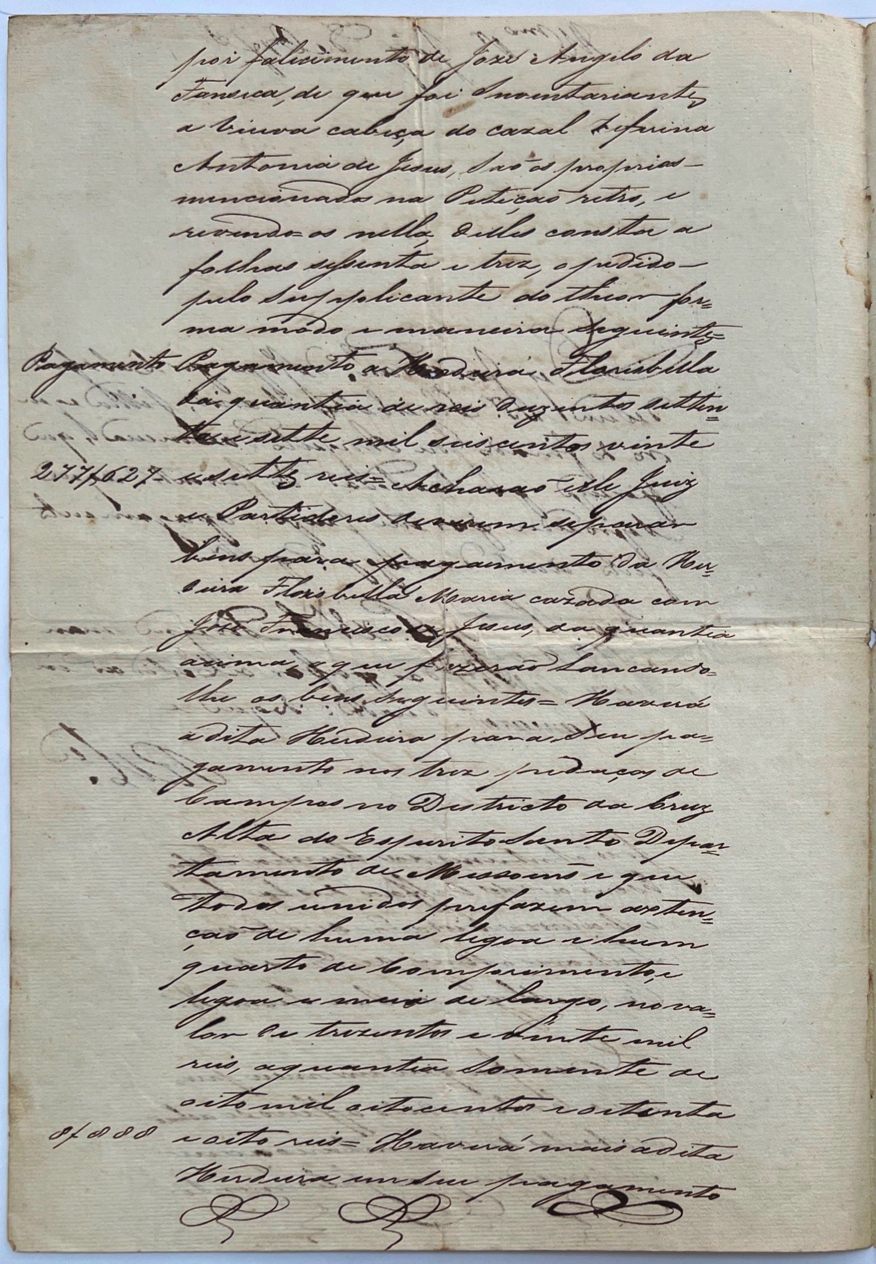 por falicimento de Joze Angelo da
Fonseca, de que foi Inventariante
a Viuva cabeça do cazal Zeferina
Antonia de Jesus, são os proprios
mencionados na Petição retro, e
revendo-os nella, delles consta a
folhas sessenta e trez, o pedido
pelo Supplicante do theor for=
ma modo e maneira seguinte=
Pagamento Pagamento a Herdeira Florisbella
da quantia de reis duzentos setten=
ta e sette mil seiscentos vinte
277/627 e sette reis= Acharão elle Juiz
e Partidores deverem separar
bens para pagamento da Her=
deira Florisbella Maria cazada com
José Francisco de Jesus, da quantia
acima, o que fizerão Lancando=
lhe os bens seguintes= Haverá
adita Herdeira para Seu pa=
gamento nos trez pedaços de
Campos no Destricto da Cruz
Alta do Espirito Santo Depar=
tamento de Missoens e que
todos unidos prefazem axten=
ção de huma legoa e hum
quarto de Comprimento, e
legoa e meia de largo, no va=
lor de trezentos e vinte mil
reis, aquantia Somente de
oito mil oitocentos e oitenta
8/888 e oito reis= Haverá mais adita
Herdeira em seu pagamento